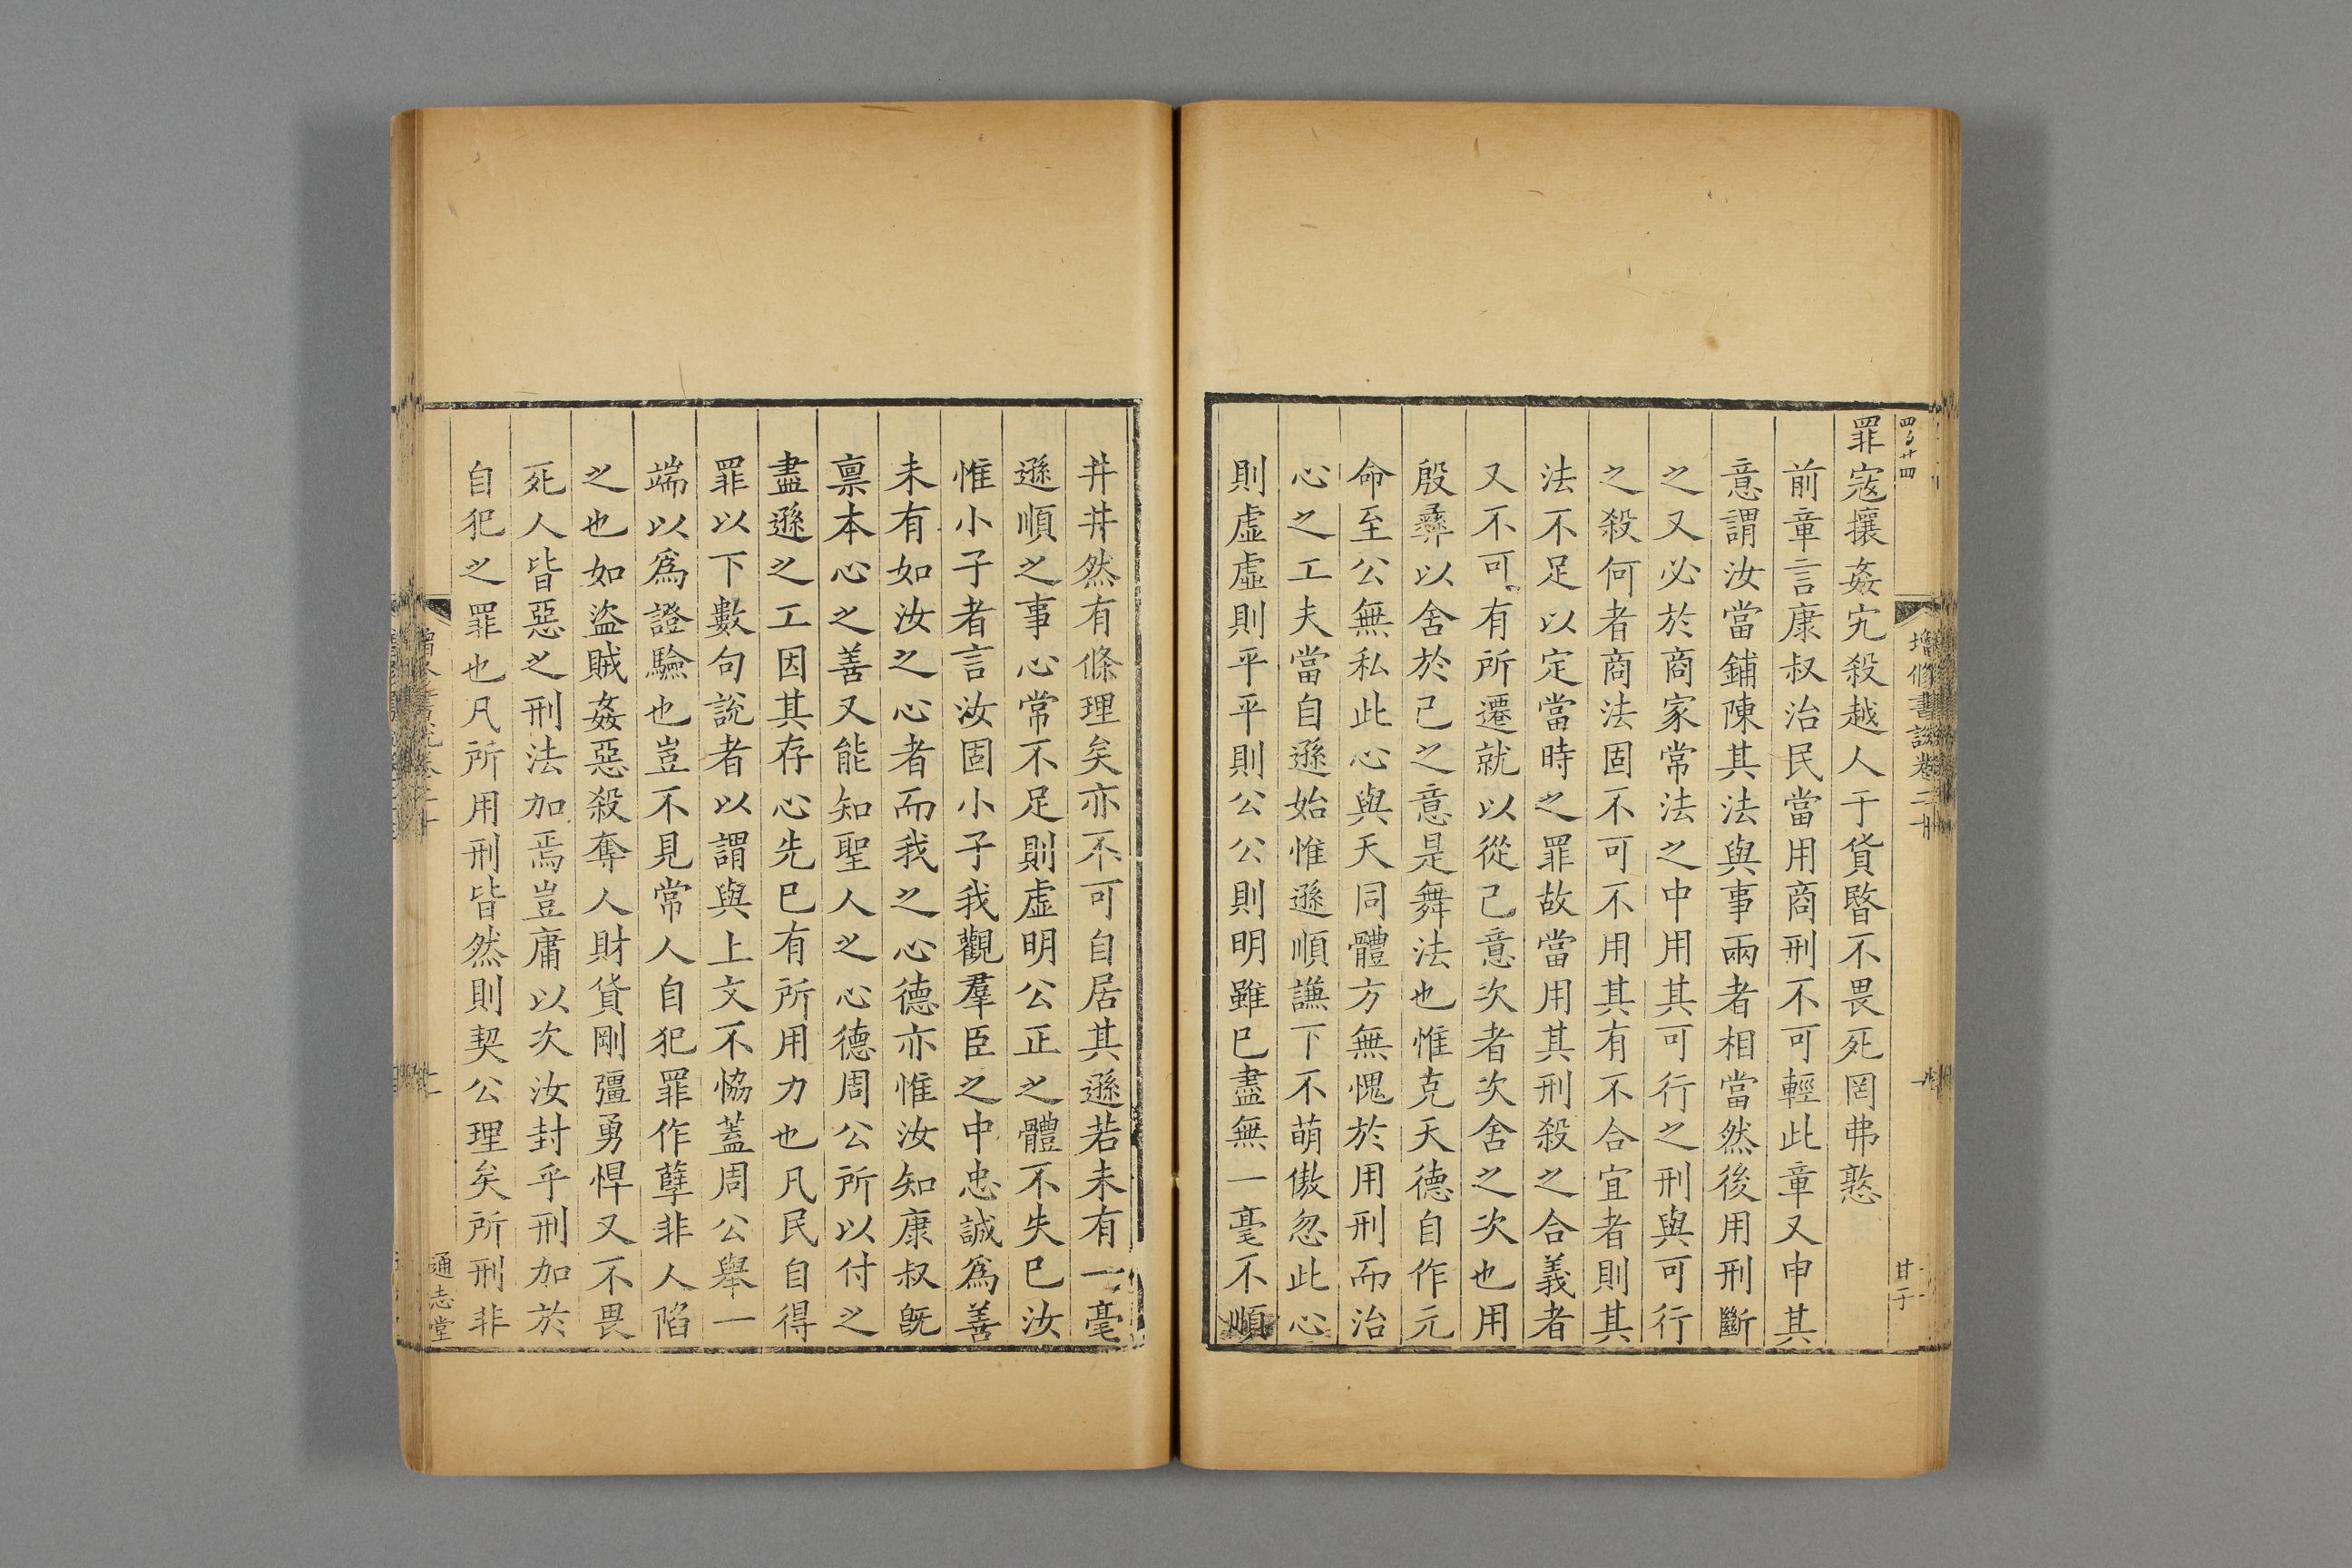 罪寇攘姦宄殺越人于貨暋不畏死罔弗憝
前章言康叔治民當用商刑不可輕此章又申其
意謂汝當鋪陳其法與事兩者相當然後用刑斷
之又必於商家常法之中用其可行之刑與可行
之殺何者商法固不可不用其有不合宜者則其
法不足以定當時之罪故當用其刑殺之合義者
又不可有所遷就以從己意次者次舍之次也用
殷彝以舍於己之意是舞法也惟克天德自作元
命至公無私此心與天同體方無愧於用刑而治
心之工夫當自遜始惟遜順謙下不萌傲忽此心
則虛虛則平平則公公則明雖已盡無一毫不順
井井然有條理矣亦不可自居其遜若未有一毫
遜順之事心常不足則虛明公正之體不失已汝
惟小子者言汝固小子我觀羣臣之中忠誠爲善
未有如汝之心者而我之心德亦惟汝知康叔旣
禀本心之善又能知聖人之心德周公所以付之
盡遜之工因其存心先已有所用力也凡民自得
罪以下數句說者以謂與上文不恊蓋周公舉一
端以爲證驗也豈不見常人自犯罪作孽非人陷
之也如盜賊姦惡殺奪人財貨剛彊勇悍又不畏
死人皆惡之刑法加焉豈庸以次汝封乎刑加於
自犯之罪也凡所用刑皆然則契公理矣所刑非
通志堂